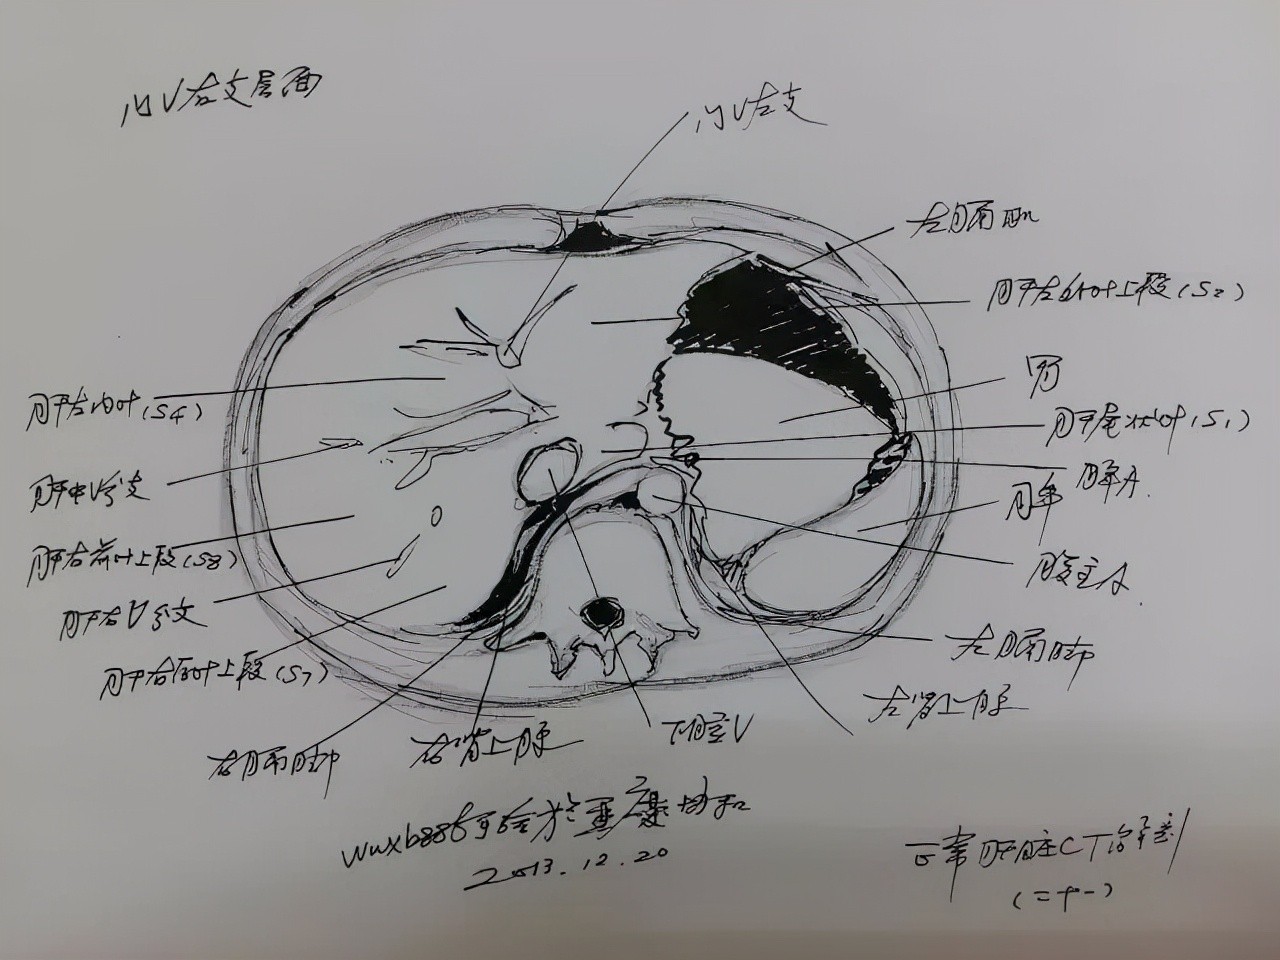 门V左支层面
门V左支
左膈肌
肝左外叶上段(S2)
胃
肝左内叶(S4)
肝尾状叶(S1)
脾A.
肝中V分支
脾
肝右前叶上段(S8)
腹主A.
肝右V分支
左膈脚
肝右后叶上段(S7)
左肾上腺
下腔V
右肾上腺
右膈脚
wuxb885手绘于重庆协和
2013.12.20
正常肝脏CT解剖
(二十一)